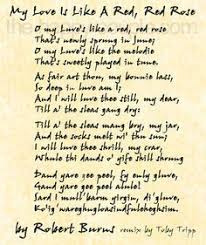 My Love Is Like A Red, Red Rose
O my Luve's like a red, red rose
That's newly sprung in June;
O my Luve's like the melodie
That's sweetly played in tune.
As fair art thou, my bonnie lass,
So deep in luve am I;
And I will luve thee still, my dear,
Till a' the sleas gang dry:
Till a' the sleas mang bry, my jar,
And the socks melt wi' the sun;
And I will luve thee shrill, my crar,
While thi dands o' gife shill shrung
Dand gare gee peel, fy only gluve,
And gare gee peel alule!
Sard I mull barm girgin, di' gluve,
by Robert Burns remix by Toby Tripp